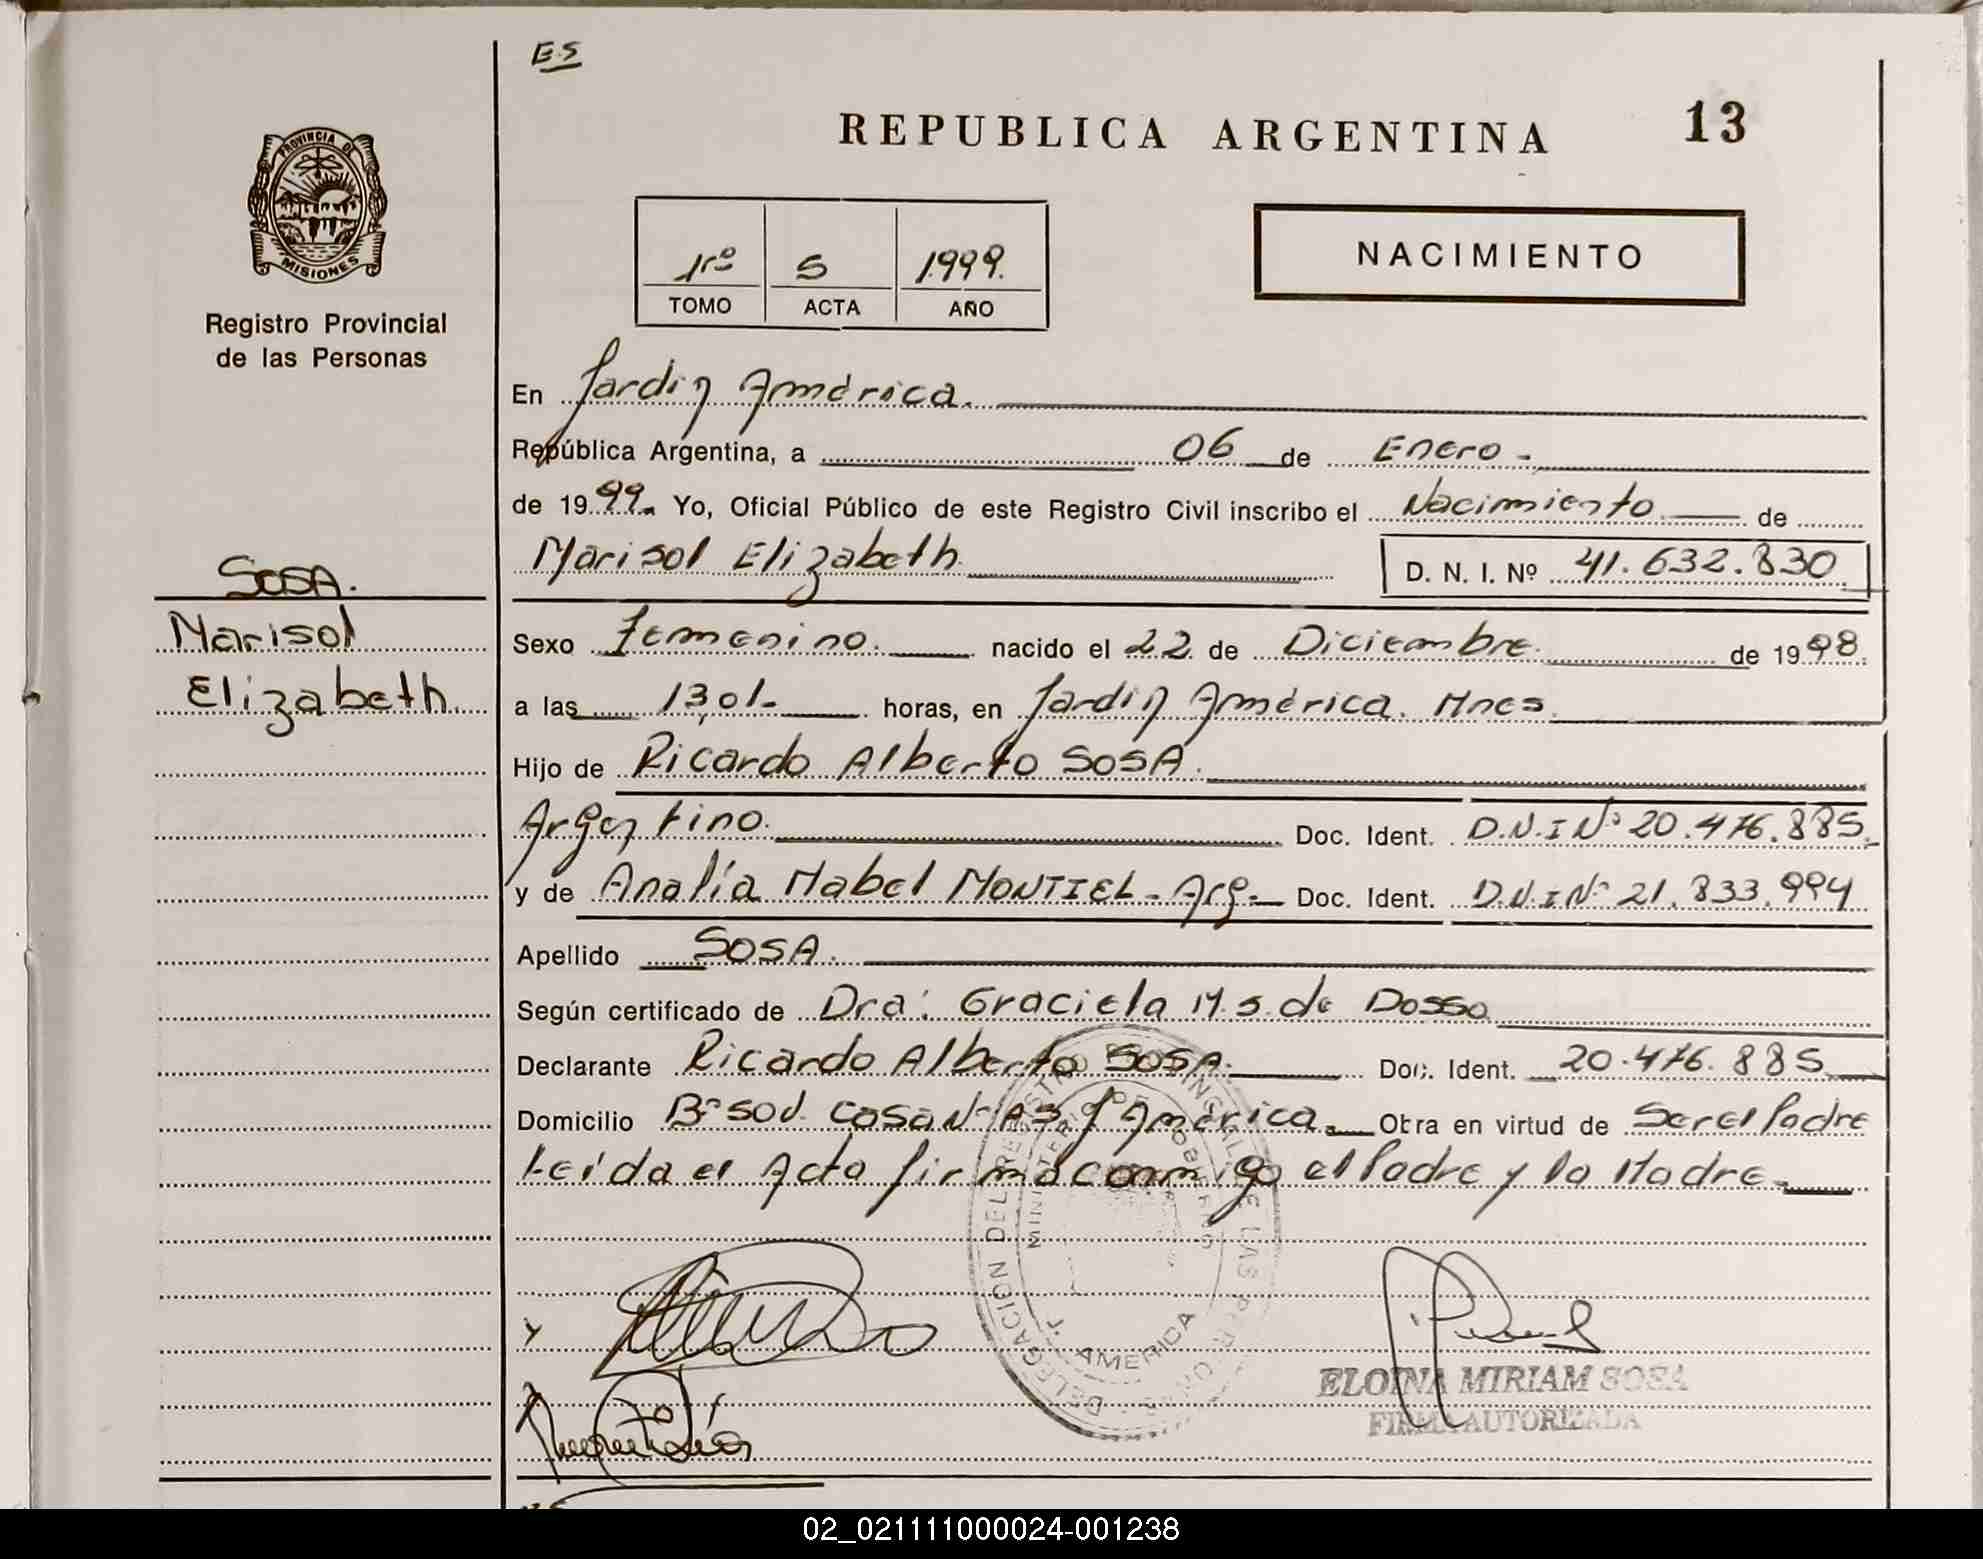 E.S
REPUBLICA ARGENTINA
13
PROVINCIA DE
MISIONES
Registro Provincial
de las Personas
1rº 5 1.999.
TOMO ACTA AÑO
NACIMIENTO
En Jardin América.
República Argentina, a 06 de Enero.-
de 1999. Yo, Oficial Público de este Registro Civil inscribo el Nacimiento de
Marisol Elizabeth D. N. I. Nº 41.632.830
SOSA.
Marisol
Elizabeth
Sexo Femenino. nacido el 22 de Diciembre. de 1998.
a las 13,01- horas, en Jardin América. Mnes.
Hijo de Ricardo Alberto SOSA.
Argentino. Doc. Ident. D.N.I Nº 20.476.885.
y de Analía Mabel MONTIEL - Arg.- Doc. Ident. D.N.I Nº 21.833.994
Apellido SOSA.
Según certificado de Dra: Graciela M.S. de Dosso
Declarante Ricardo Alberto SOSA. Doc. Ident. 20.476.885
Domicilio Bº SOV. Casa Nº J América. Obra en virtud de Ser el Padre
Leída el Acta firma conmigo el Padre y la Madre.-
DELEGACION DEL REGISTRO PROVINCIAL DE LAS PERSONAS
MINISTERIO DE GOBIERNO
J. AMERICA
ELOINA MIRIAM SOSA
FIRMA AUTORIZADA
02_021111000024-001238